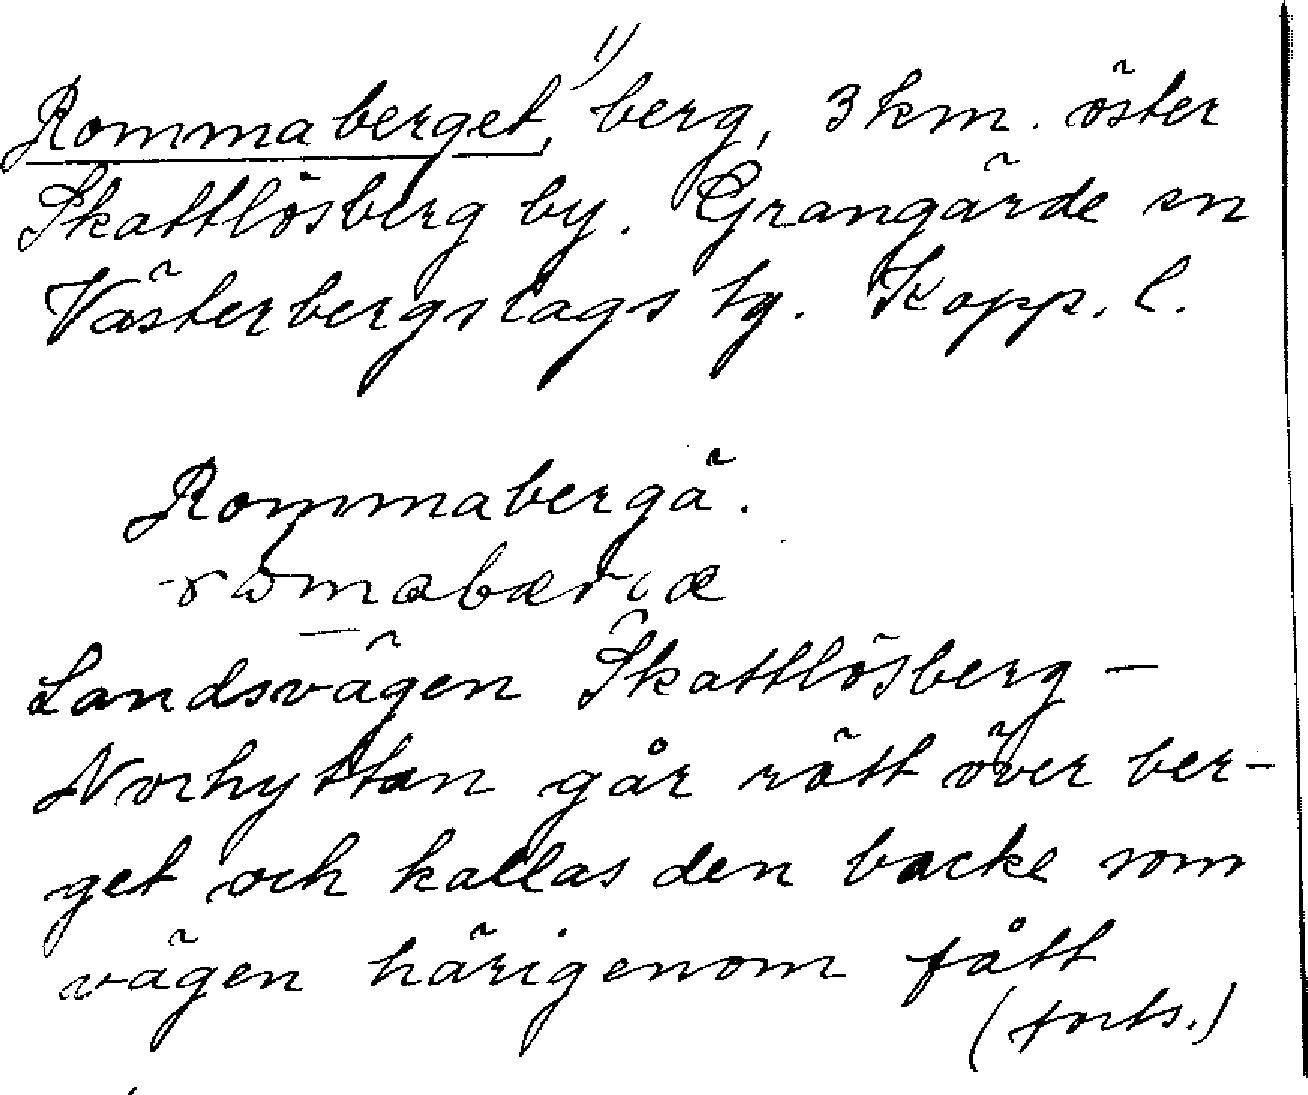 Rommaberget, 1) berg, 3 km. öster
Skattlösberg by. Grangärde sn
Västerbergslags tg. Kopp. l.
Rommabergä.
Landsvägen Skattlösberg –
Norhyttan går rätt över ber-
get och kallas den backe som
vägen härigenom fått
(forts.)